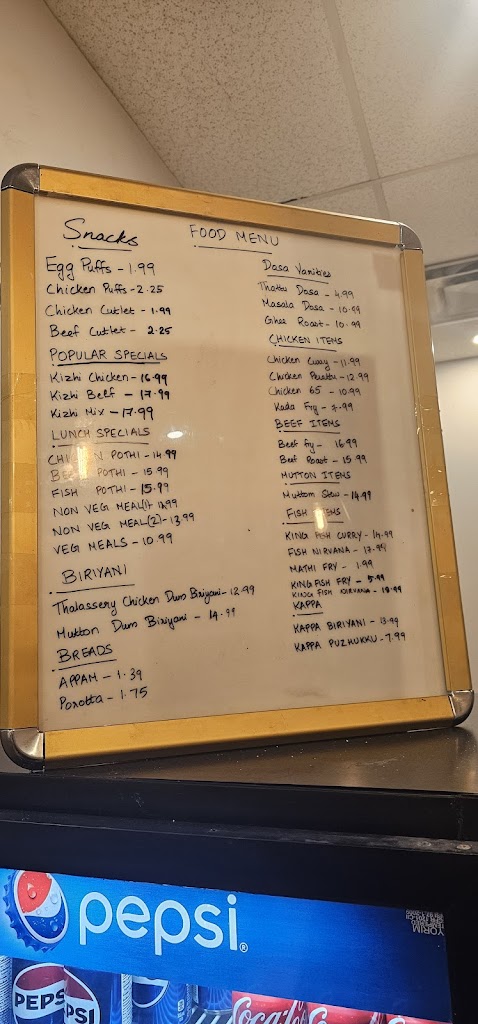 FOOD MENU
Snacks
Egg Puffs - 1.99
Chicken Puffs - 2.25
Chicken Cutlet - 1.99
Beef Cutlet - 2.25
POPULAR SPECIALS
Kizhi Chicken - 16.99
Kizhi Beef - 17.99
Kizhi Mix - 17.99
LUNCH SPECIALS
POTHI - 14.99
POTHI - 15.99
FISH POTHI - 15.99
NON VEG MEAL(1)
NON VEG MEAL(2) - 13.99
VEG MEALS - 10.99
BIRIYANI
Thalassery Chicken Dum Biriyani - 12.99
Mutton Dum Biriyani - 14.99
BREADS
APPAM - 1.39
Porotta - 1.75
Dosa Varities
Thattu Dosa - 4.99
Masala Dosa - 10.99
Ghee Roast - 10.99
CHICKEN ITEMS
Chicken Curry - 11.99
Chicken Perattu - 12.99
Chicken 65 - 10.99
Kada Fry - 7.99
BEEF ITEMS
Beef fry - 16.99
Beef Roast - 15.99
MUTTON ITEMS
Muttom Stew - 14.99
FISH ITEMS
KING FISH CURRY - 14.99
FISH NIRVANA - 17.99
MATHI FRY - 1.99
KING FISH FRY - 5.99
KING FISH NIRVANA - 18.99
KAPPA
KAPPA BIRIYANI - 13.99
KAPPA PUZHUKKU - 7.99
pepsi®
PEPSI
PSI
Coca-Co